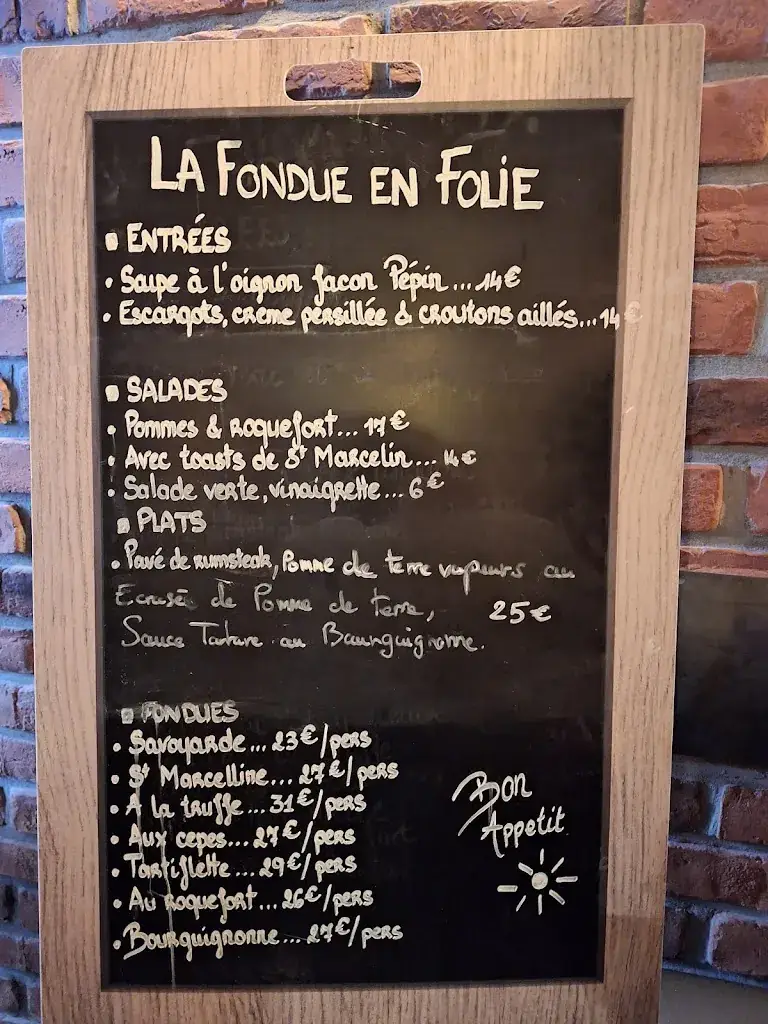 LA FONDUE EN FOLIE
ENTRÉES
Soupe à l'oignon facon Pépin...14€
Escargots, creme persillée & croutons aillés...14€
SALADES
Pommes & roquefort...17€
Avec toasts de St Marcelin...14€
Salade verte, vinaigrette...6€
PLATS
Pavé de rumsteak, Pomme de terre vapeurs ou
Ecrasée de Pomme de terre, 25€
Sauce Tartare ou Bourguignonne.
FONDUES
Savoyarde...23€/pers
St Marcelline...27€/pers
A la truffe...31€/pers
Aux cepes...27€/pers
Tartiflette...29€/pers
Au roquefort...26€/pers
Bourguignonne...27€/pers
Bon
Appetit